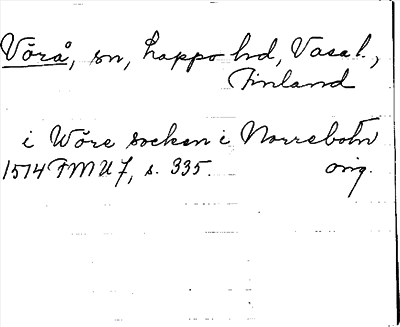 Vörå, sn, Lappo hd, Vasa l.,
Finland
i Wöre socken i Norrebotn
1514 FMU 7, s. 335. orig.